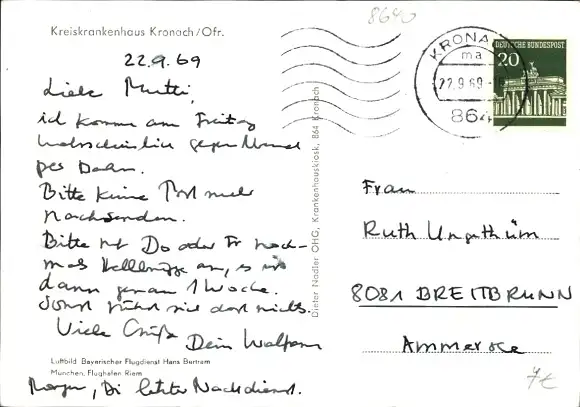 8640
Kreiskrankenhaus Kronach/Ofr.
22.9.69
Liebe Mutti,
ich komme am Freitag
wahrscheinlich gegen Abend
per Bahn.
Bitte keine Post mehr
nachsenden.
Bitte ruf Do oder Fr noch-
mals an, es ist
dann genau 1 Woche.
Sonst rührt sie doch nichts.
Viele Grüße
Dein Wolfram
Luftbild Bayerischer Flugdienst Hans Bertram
München, Flughafen Riem
Morgen, Di letzter Nachtdienst.
Dieter Nadler OHG, Krankenhauskiosk, 864 Kronach
KRONA
ma
22.9.69
864
DEUTSCHE BUNDESPOST
20
Frau
Ruth Ungethüm
8081 BREITBRUNN
Ammersee
7€